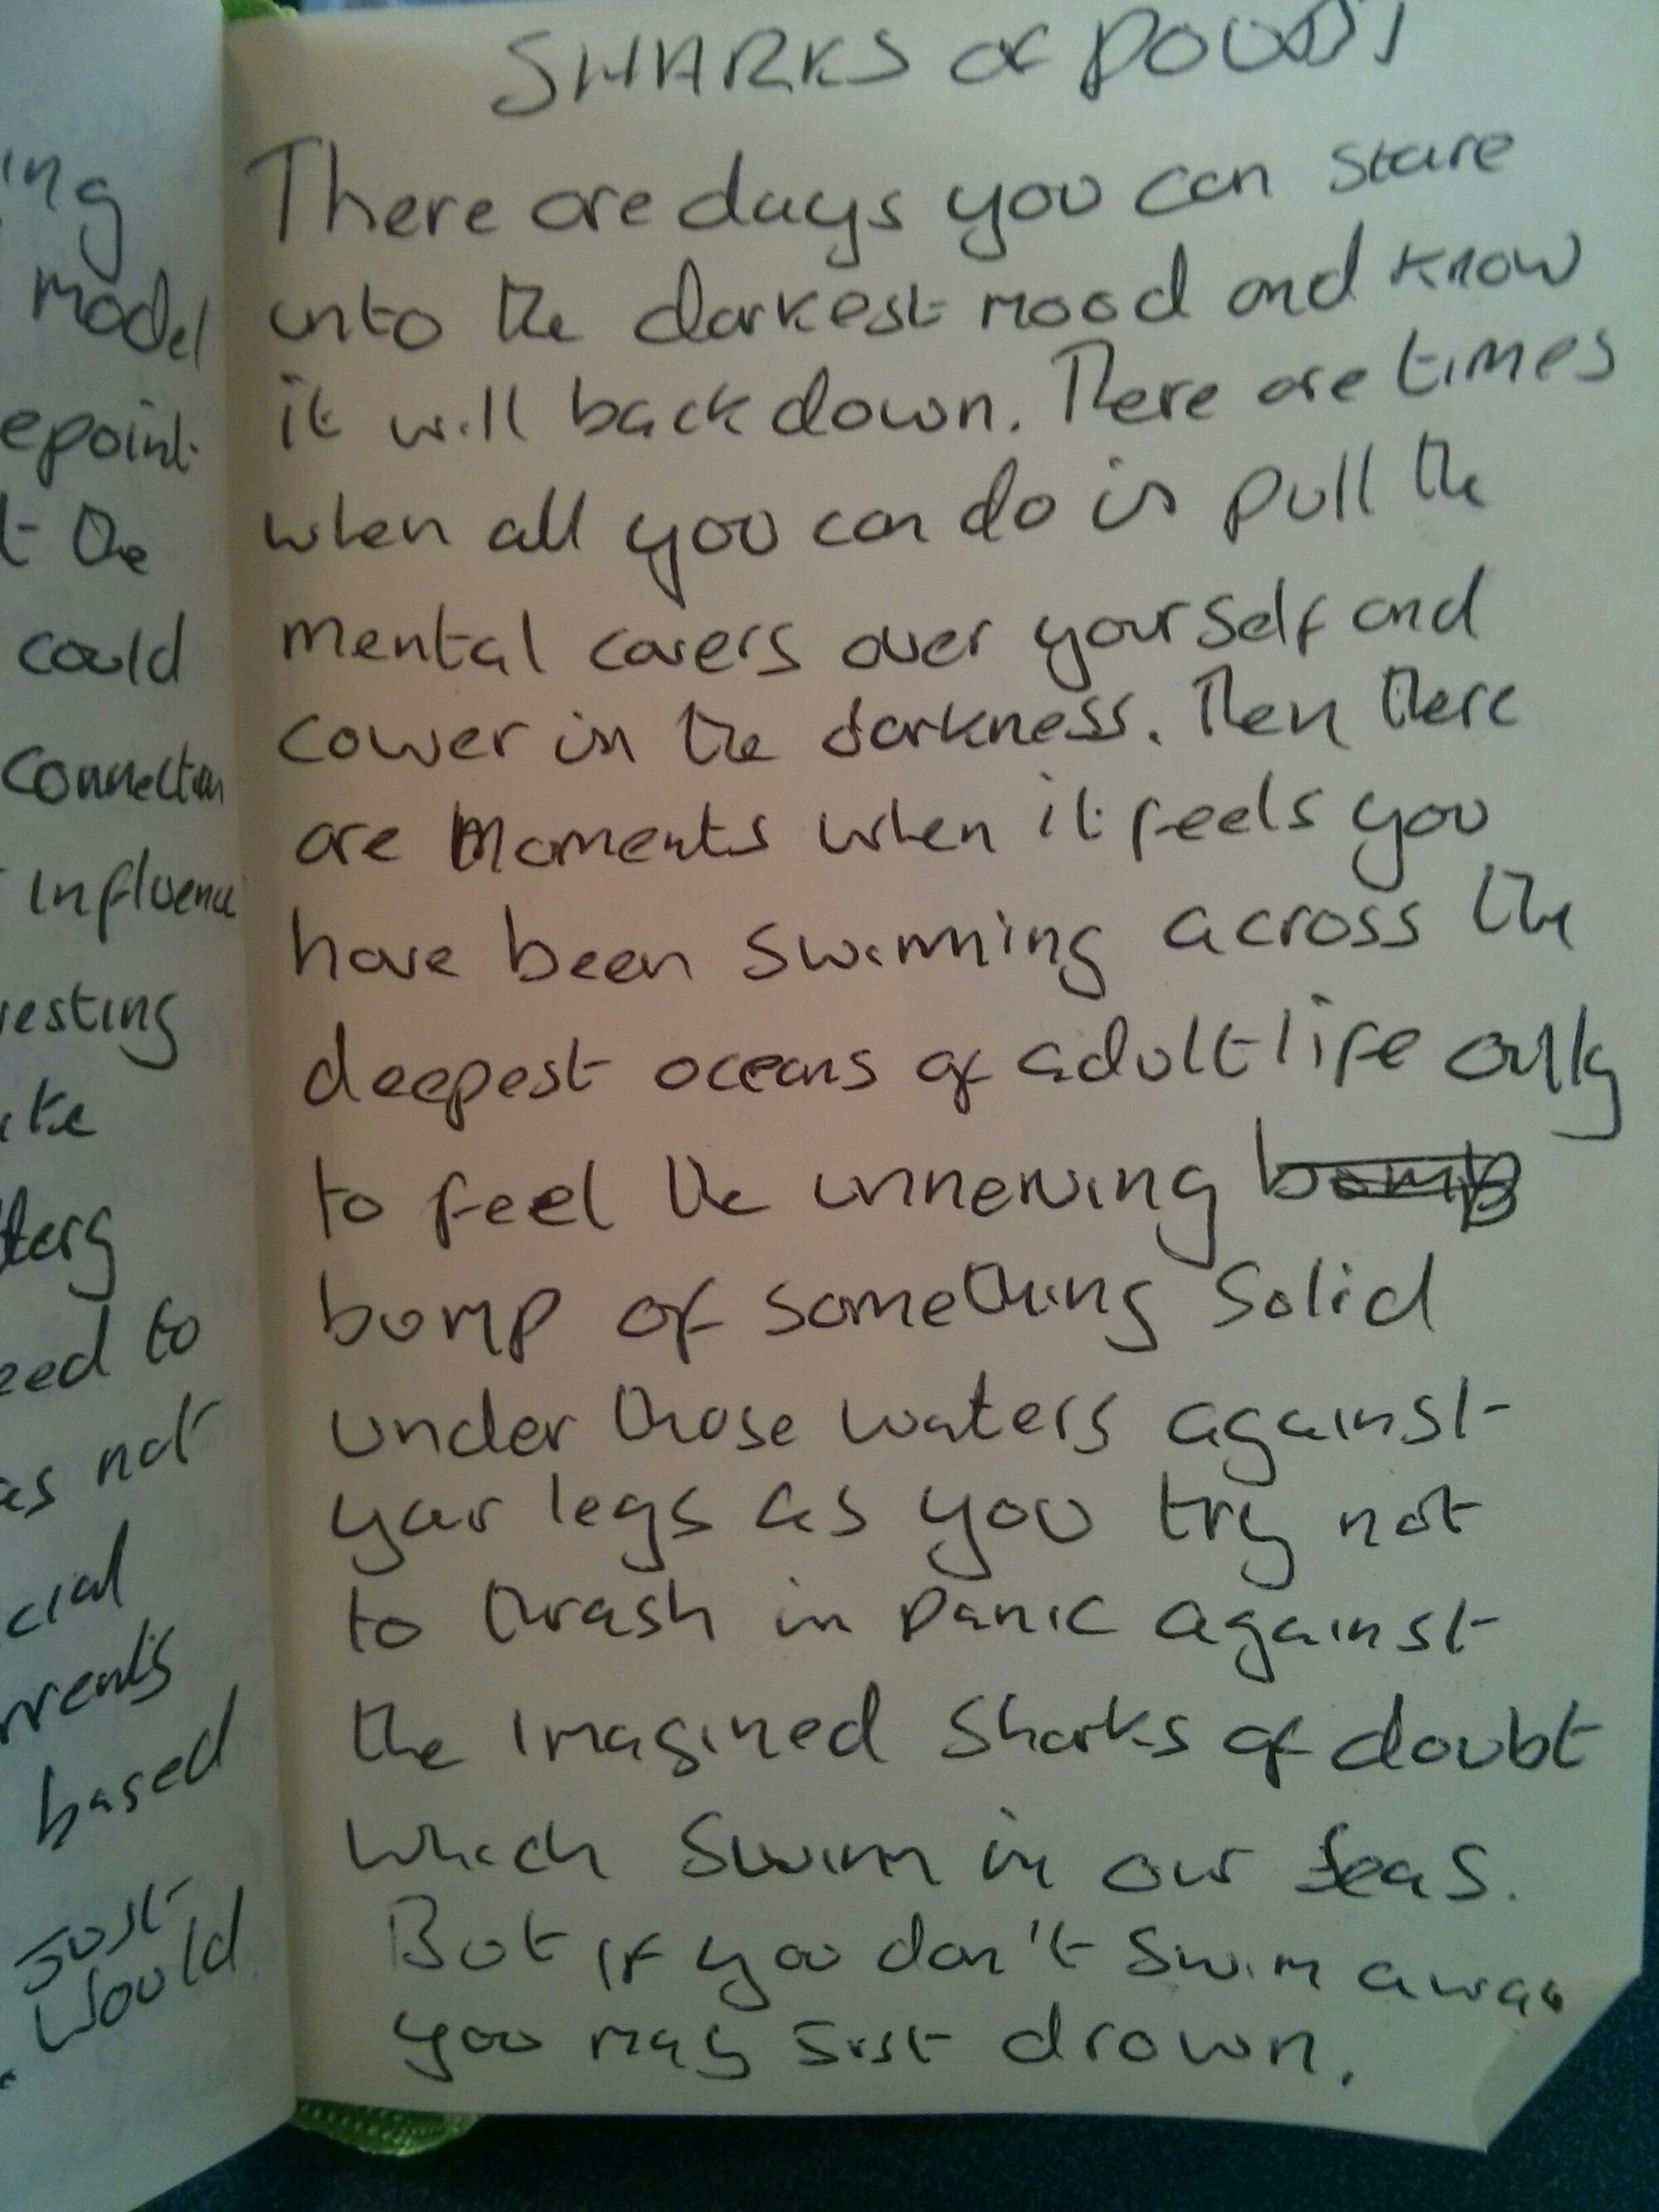 SHARKS of DOUBT
There are days you can stare
into the darkest mood and know
it will back down. There are times
when all you can do is pull the
mental covers over yourself and
cower in the darkness. Then there
are moments when it feels you
have been swimming across the
deepest oceans of adult life only
to feel the unnerving bomb
bump of something solid
under those waters against
your legs as you try not
to thrash in panic against
the imagined sharks of doubt
which swim in our seas.
But if you don't swim away
you may just drown.
ing
model
epoint
t the
could
connection
influence
resting
ike
eed to
as not
cial
rrents
based
just
would